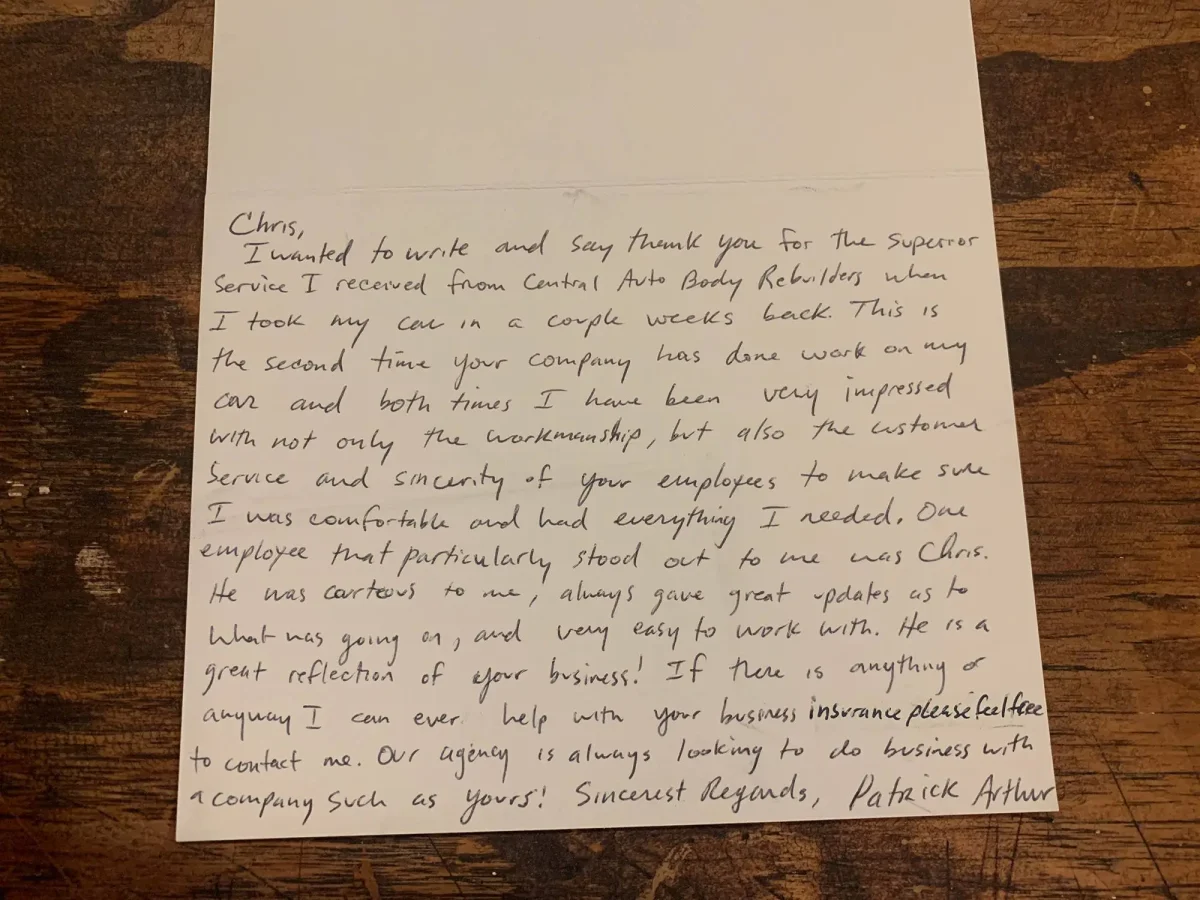 Chris,
I wanted to write and say thank you for the superior
service I received from Central Auto Body Rebuilders when
I took my car in a couple weeks back. This is
the second time your company has done work on my
car and both times I have been very impressed
with not only the workmanship, but also the customer
service and sincerity of your employees to make sure
I was comfortable and had everything I needed. One
employee that particularly stood out to me was Chris.
He was carteous to me, always gave great updates as to
what was going on, and very easy to work with. He is a
great reflection of your business! If there is anything or
anyway I can ever help with your business insurance please feel free
to contact me. Our agency is always looking to do business with
a company such as yours! Sincerest Regards, Patrick Arthur